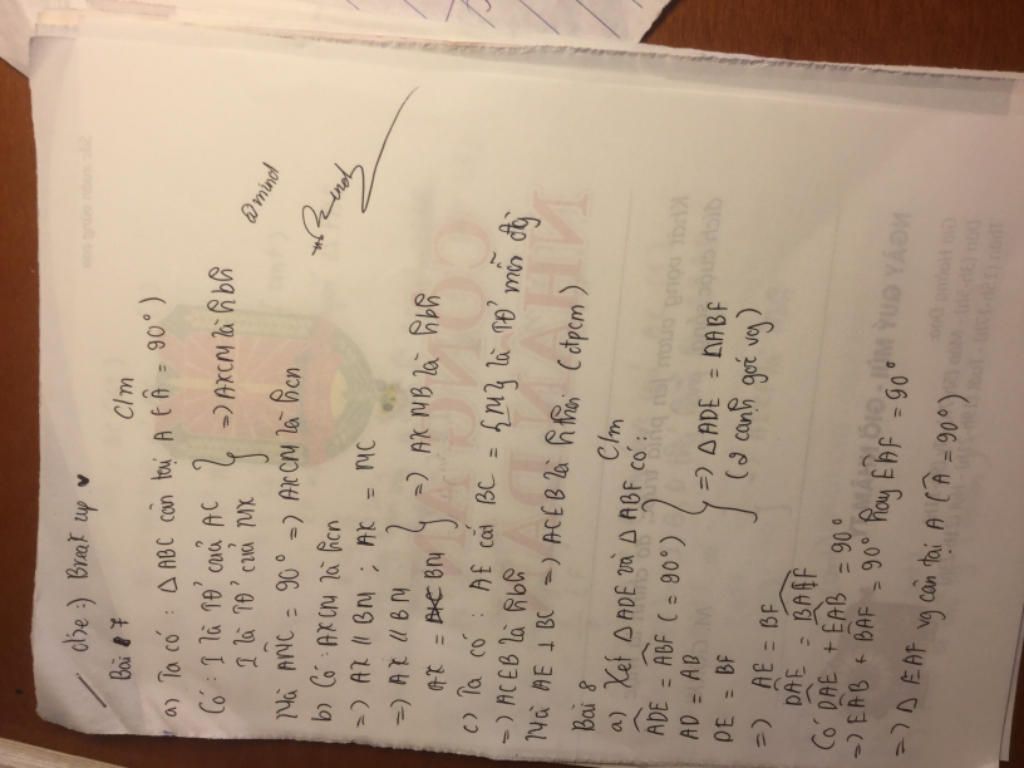 Bài 7
C/m
a) Ta có : Δ ABC cân tại A ( Â = 90° )
Có : I là TĐ của AC
I là TĐ của MK
} => AKCM là hbh
Mà AMC = 90° => AKCM là hcn
b) Có : AKCM là hcn
=> AK // BM ; AK = MC
=> AK // BM
AK = BM
} => AKMB là hbh
c) Ta có : AE cắt BC = {M} là TĐ mỗi đg
=> ACEB là hbh
Mà AE ⊥ BC => ACEB là hthoi (đpcm)
Bài 8
C/m
a) Xét Δ ADE và Δ ABF có :
ADE = ABF ( = 90° )
AD = AB
DE = BF
} => Δ ADE = Δ ABF
(2 cạnh góc vg)
=> AE = BF
DAE = BAF
Có DAE + EAB = 90°
=> EAB + BAF = 90° hay EAF = 90°
=> Δ EAF vg cân tại A ( Â = 90° )
@mind